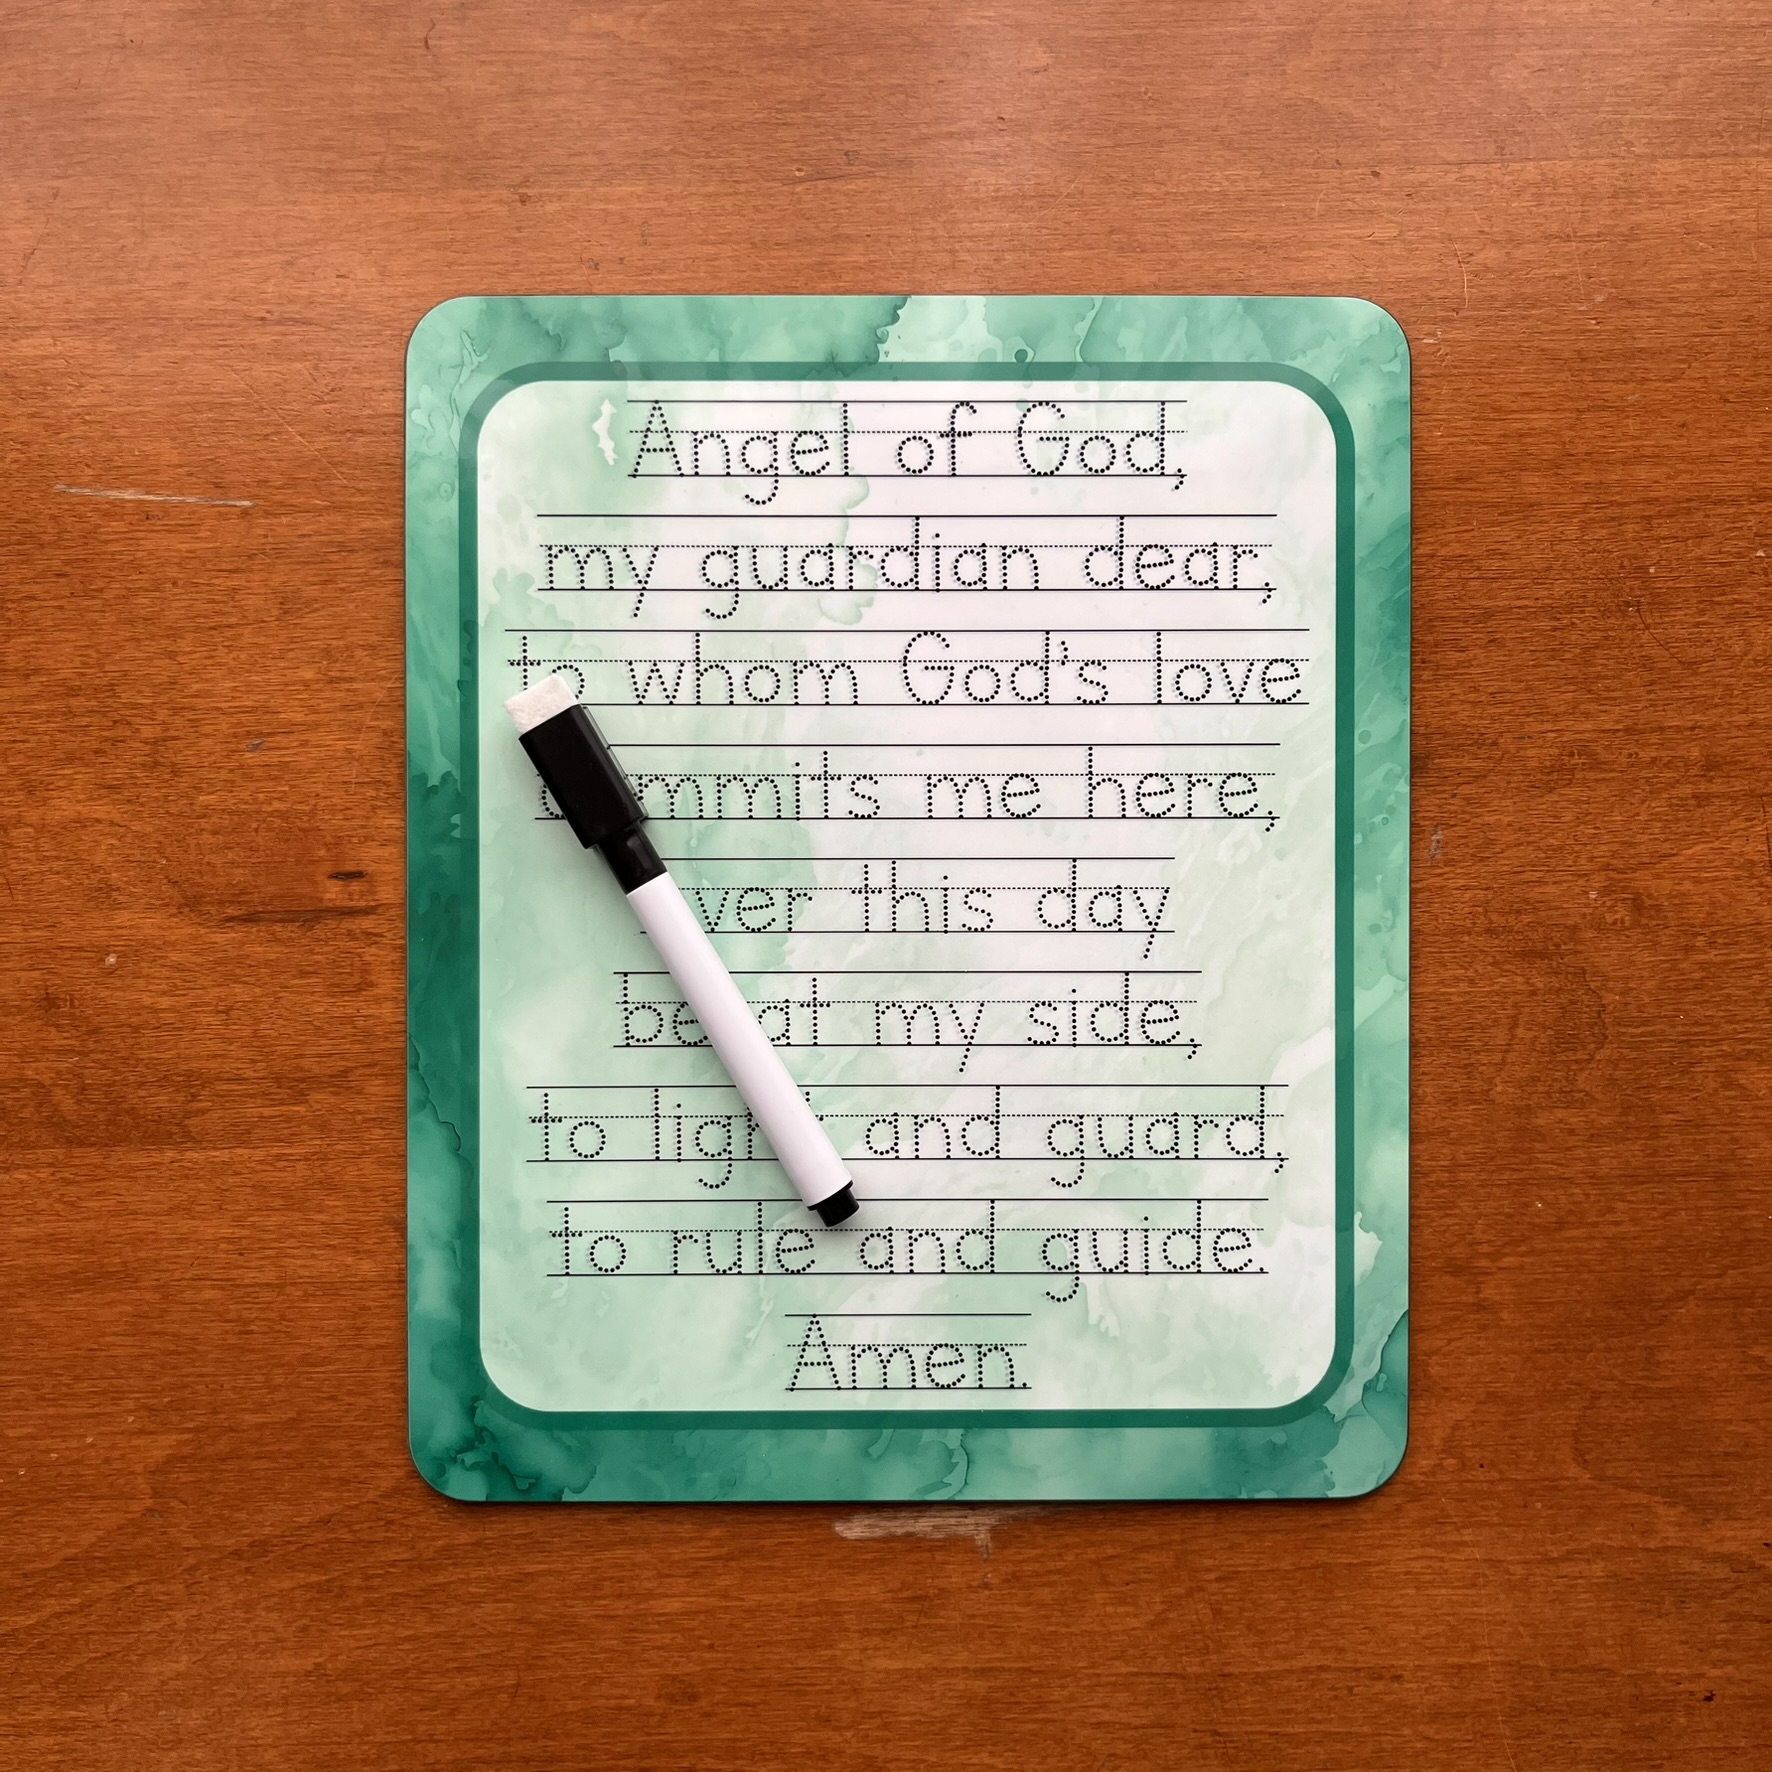 Angel of God,
my guardian dear,
to whom God's love
commits me here,
this day
be at my side,
to light and guard,
to rule and guide.
Amen.